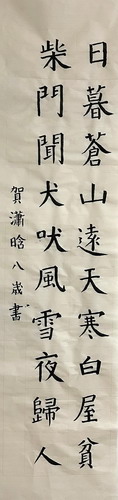 日暮蒼山遠天寒白屋貧
柴門聞犬吠風雪夜歸人
賀瀟晗八歲書